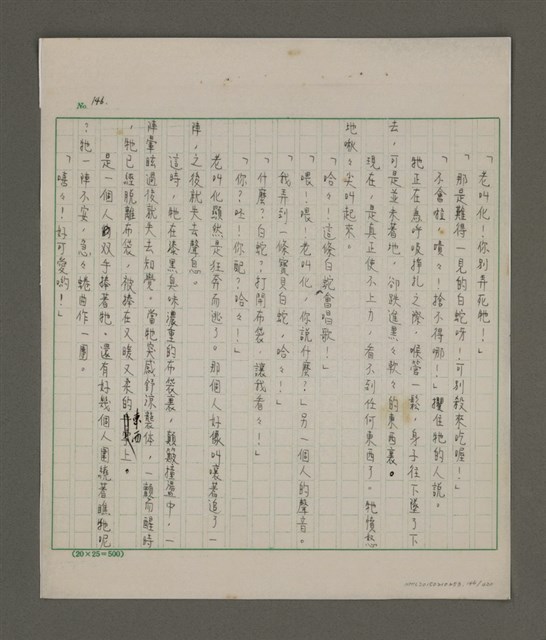 No. 146.
「老叫化！你別弄死牠！」
「那是難得一見的白蛇呀！可別殺來吃喔！」
「不會啦！嘖々！捨不得哪！」攫住牠的人說。
牠正在為呼吸掙扎之際，喉管一鬆，身子往下墜了下
去，可是並未著地。卻跌進黑々軟々的東西裏。
現在，是真正使不上力，看不到任何東西了。牠憤怒
地嗷々尖叫起來。
「哈々！這條白蛇會唱歌！」
「喂！喂！老叫化，你說什麼？」另一個人的聲音。
「我弄到一條寶貝白蛇，哈々！」
「什麼？白蛇？打開布袋，讓我看々！」
「你？呸！你配？哈々！」
老叫化顯然是往奔而逃了。那個人好像叫嚷著追了一
陣，之後就失去聲息。
這時，牠在漆黑臭味濃重的布袋裏，顛簸撞盪中，一
陣暈眩過後就失去知覺。當牠突感舒涼襲体，一顫而醒時
，牠已經脫離布袋，被捧在又暖又柔的東西上。
是一個人双手捧著牠。還有好幾個人圍繞著瞧牠呢
？牠一陣不安，急々蜷曲作一團。
「嘻々！好可愛喲！」
(20×25=500)